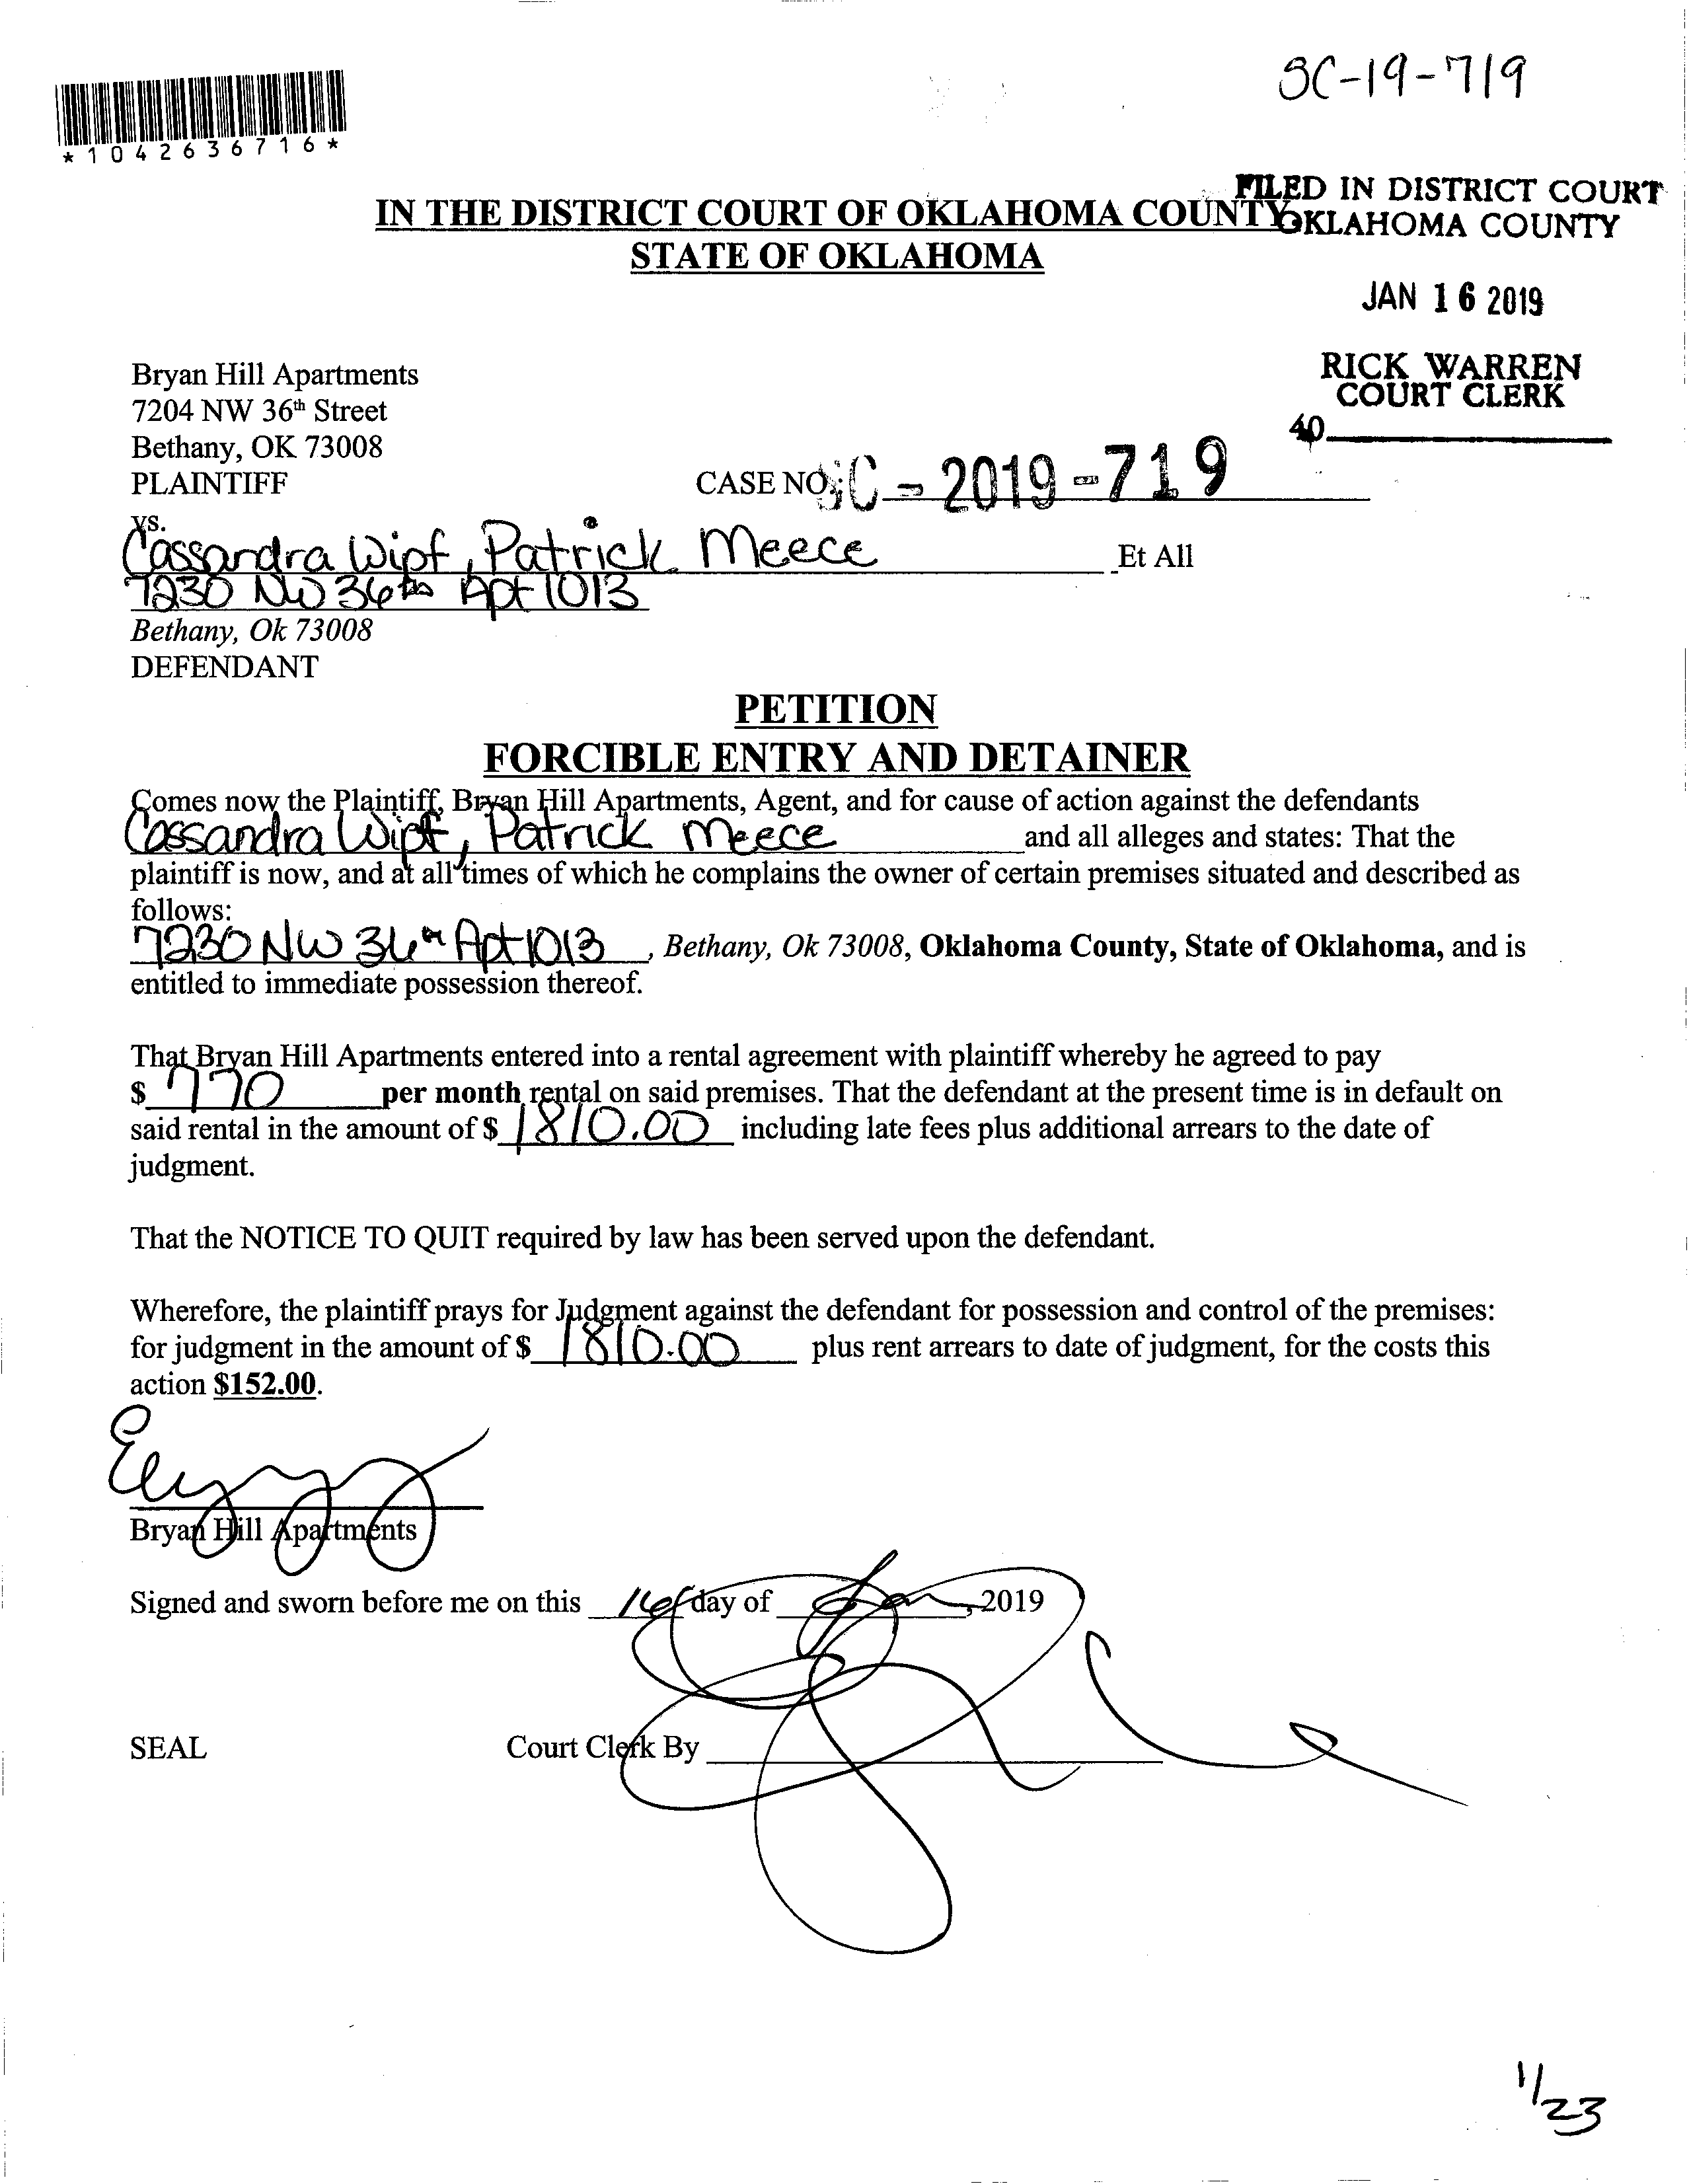 SC-19-719
*1042636716*
FILED IN DISTRICT COURT
OKLAHOMA COUNTY
IN THE DISTRICT COURT OF OKLAHOMA COUNTY
STATE OF OKLAHOMA
JAN 16 2019
RICK WARREN
COURT CLERK
40
Bryan Hill Apartments
7204 NW 36th Street
Bethany, OK 73008
PLAINTIFF
CASE NO. SC - 2019 - 719
vs.
Cassandra Wipf, Patrick Meece Et All
7230 NW 36th Apt 1013
Bethany, Ok 73008
DEFENDANT
PETITION
FORCIBLE ENTRY AND DETAINER
Comes now the Plaintiff, Bryan Hill Apartments, Agent, and for cause of action against the defendants
Cassandra Wipf, Patrick Meece and all alleges and states: That the
plaintiff is now, and at all times of which he complains the owner of certain premises situated and described as
follows:
7230 NW 36th Apt 1013, Bethany, Ok 73008, Oklahoma County, State of Oklahoma, and is
entitled to immediate possession thereof.
That Bryan Hill Apartments entered into a rental agreement with plaintiff whereby he agreed to pay
$ 770 per month rental on said premises. That the defendant at the present time is in default on
said rental in the amount of $ 1810.00 including late fees plus additional arrears to the date of
judgment.
That the NOTICE TO QUIT required by law has been served upon the defendant.
Wherefore, the plaintiff prays for Judgment against the defendant for possession and control of the premises:
for judgment in the amount of $ 1810.00 plus rent arrears to date of judgment, for the costs this
action $152.00.
Bryan Hill Apartments
Signed and sworn before me on this 16 day of Jan, 2019
SEAL Court Clerk By
1/23